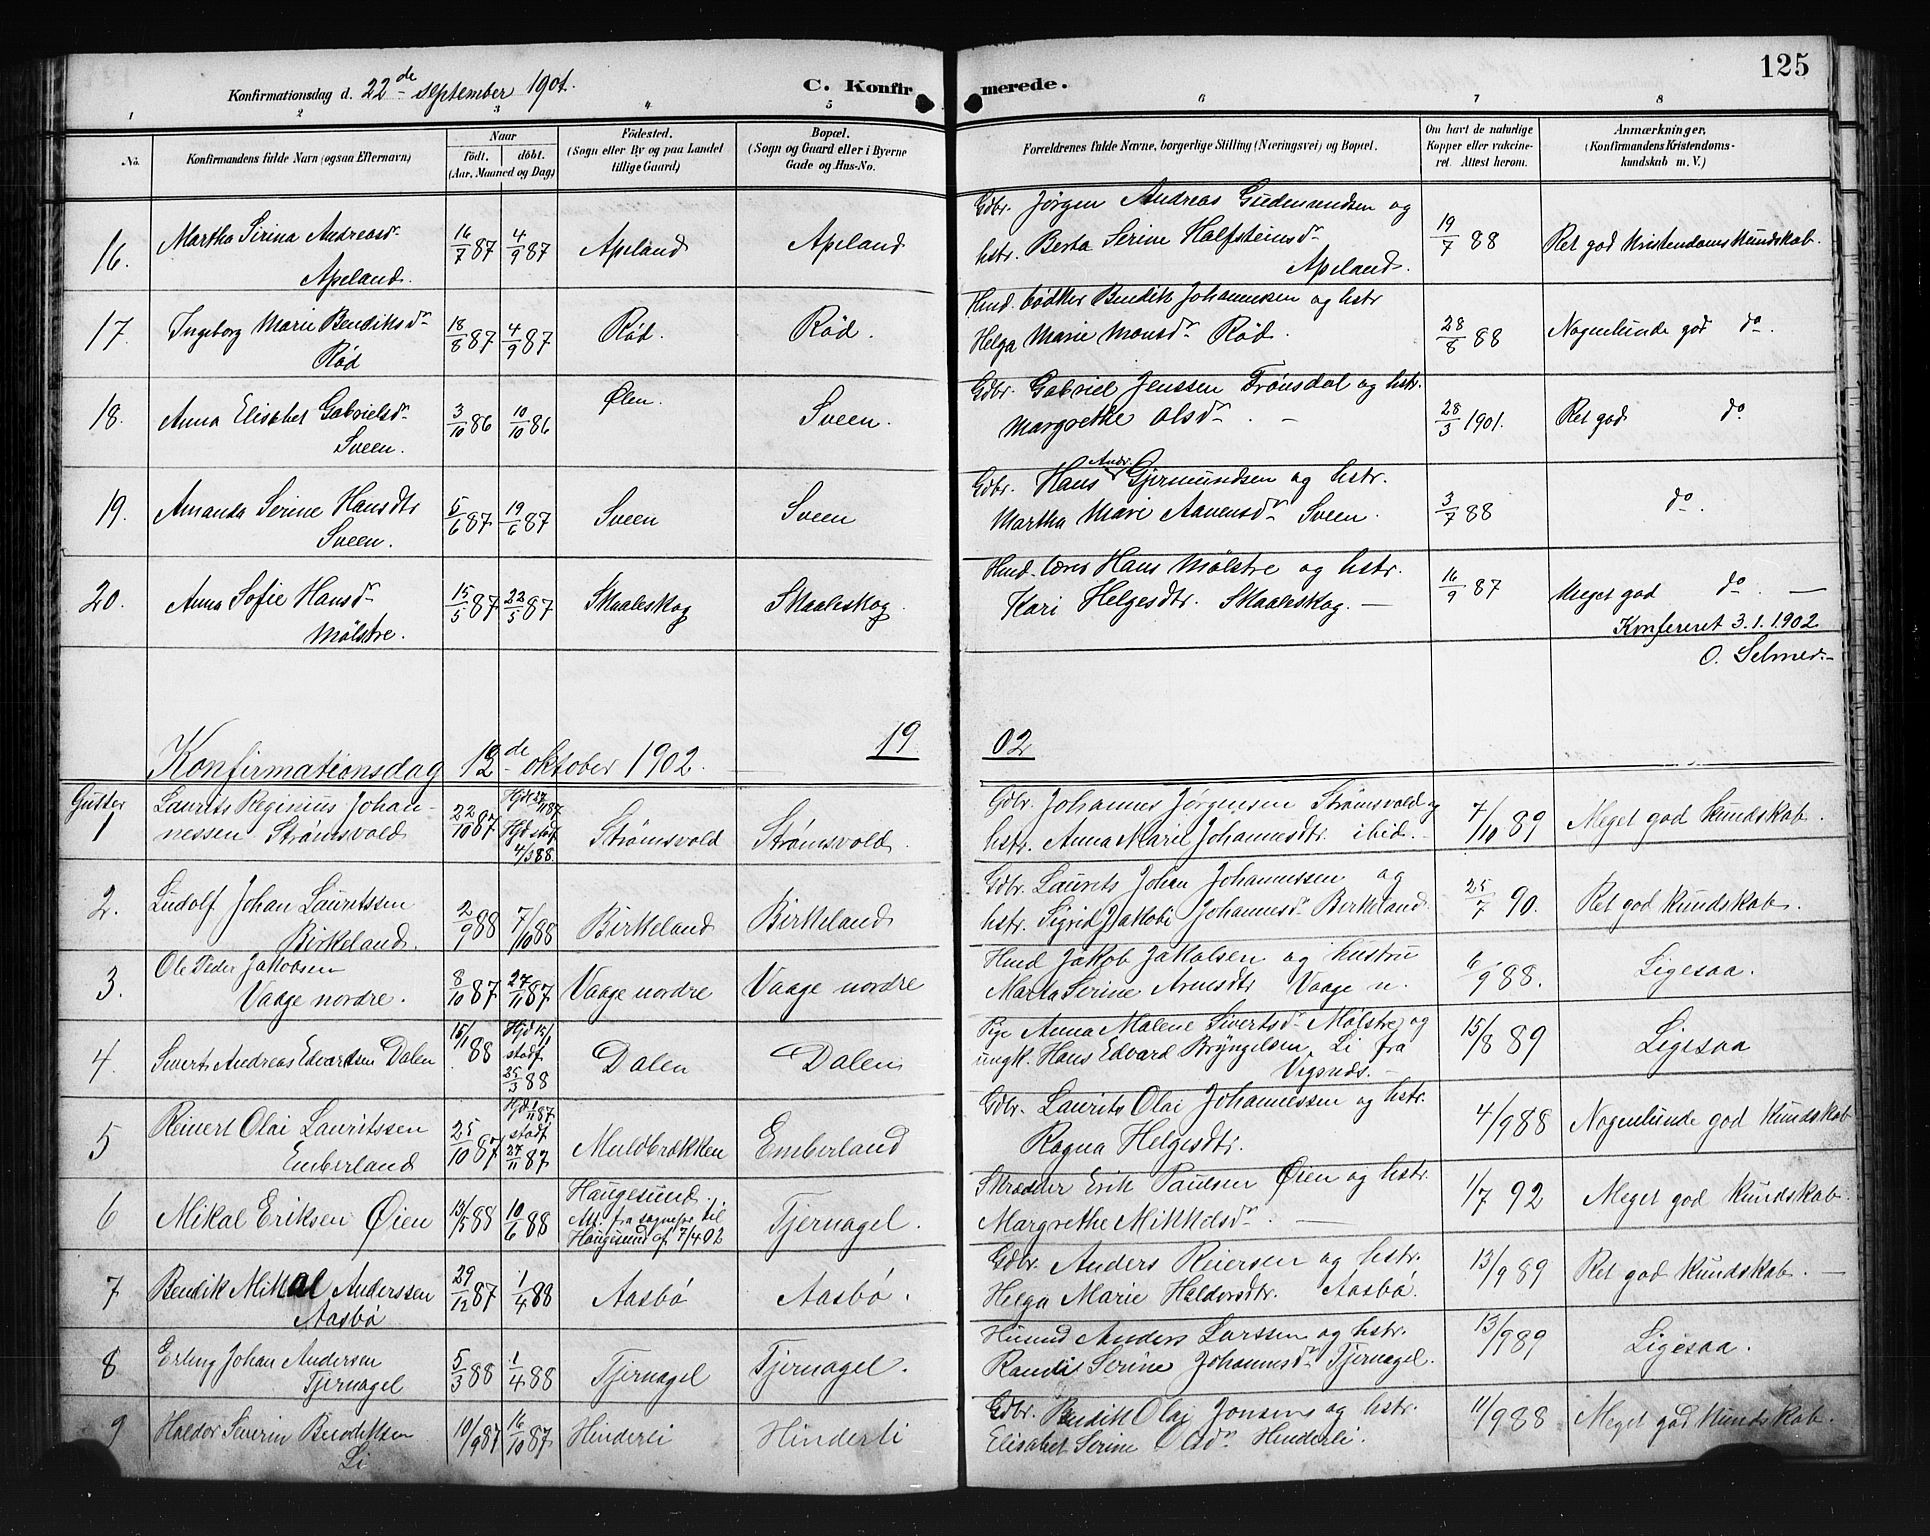 125
Konfirmationsdag d. 22de september 1901.
C. Konfirmerede.
1 2 3 4 5 6 7 8
No.
Konfirmandens fulde Navn (ogsaa Efternavn)
Naar
födt. döbt.
(Aar, Maaned og Dag)
Födested.
(Sogn eller By og paa Landet
tillige Gaard)
Bopæl.
(Sogn og Gaard eller i Byerne
Gade og Hus-No.
Forældrenes fulde Navne, borgerlige Stilling (Næringsvei) og Bopæl.
Om havt de naturlige
Kopper eller vakcine-
ret. Attest herom.
Anmærkninger,
(Konfirmandens Kristendoms-
kundskab m. V.)
16. Martha Sirina Andreasdr Apeland. 16/7 87 4/9 87 Apeland Apeland
Gdbr. Jørgen Andreas Gudmundsen og
hstr. Berta Serine Halfsteinsdr
Apeland. 19/7 88 Ret god Kristendomskundskab.
17. Ingeborg Marie Bendiksdr Rød 18/8 87 4/9 87 Rød. Rød.
Hmd. bødker Bendik Johannesen og hstr
Helga Marie Monsdr Rød. 28/8 88 Nogenlunde god do.
18. Anna Elisabet Gabrielsdr Sveen. 3/10 86 10/10 86 Ølen. Sveen.
Gdbr. Gabriel Jenssen Trønsdal og hstr.
Margrethe Olsdr. — 28/3 1901. Ret god do
19. Amanda Serine Hansdtr Sveen. 5/6 87 19/6 87 Sveen Sveen
Gdbr. Hans Andr. Gjermundsen og hstr.
Martha Marie Aanensdr Sveen. 3/7 88 do.
20. Anna Sofie Hansdr Mölstre. 15/5 87 22/5 87 Skaaleskog Skaaleskog.
Hmd. lærer Hans Mölstre og hstr.
Kari Helgesdtr. Skaaleskog. — 16/9 87 Meget god do. —
Konfereret 3.1.1902
O. Selmer.
1902
Konfirmationsdag 12de oktober 1902.
Gutter
1 Laurits Reginius Johan-
nessen Strømsvold 22/10 87 Hjd 27/11 87
Hjd stadf
4/3 88 Strømsvold Strømsvold.
Gdbr. Johannes Jørgensen Strømsvold og
hstr. Anna Marie Johannesdtr. ibid. 7/10 89 Meget god kundskab.
2. Ludolf Johan Lauritssen
Birkeland. 2/9 88 7/10 88 Birkeland Birkeland
Gdbr. Laurits Johan Johannessen og
hstr. Sigrid Jakobe Johannesdr Birkeland. 25/7 90. Ret god kundskab.
3. Ole Peder Jakobsen
Vaage nordre. 8/10 87 27/11 87 Vaage nordre Vaage nordre
Hmd Jakob Jakobsen og hustru
Marta Serine Arnesdtr Vaage n. 6/9 88. Ligesaa.
4. Sivert Andreas Edvardsen Dalen 15/1 88 Hjd 15/1
stadf.
25/3 88 Dalen Dalen
Pige Anna Malene Sivertsdr Mølstre og
ungk. Hans Edvard Bryngelsen Li fra
Vigsnæs. — 15/8 89 Ligesaa
5 Reinert Olai Lauritssen
Emberland 25/10 87 Hjd 1/11 87
stadf
27/11 87 Muldbrækken Emberland
Gdbr. Laurits Olai Johannessen og hstr.
Ragna Helgesdtr. 4/9 88 Nogenlunde god kundskab
6 Mikal Eriksen Øien 13/5 88 10/6 88 Haugesund.
Att. fra sognepr. til
Haugesund af 7/4 02 Tjernagel.
Skrædder Erik Paulsen Øien og hstr.
Margrethe Mikkelsdr. — 1/7 92 Meget god kundskab.
7 Bendik Mikal Anderssen
Aasbø 29/12 87 1/4 88 Aasbø Aasbø.
Gdbr. Anders Reiersen og hstr.
Helga Marie Haldorsdtr. Aasbø. 13/9 89 Ret god kundskab. —
8 Erling Johan Andersen
Tjernagel 5/3 88 1/4 88 Tjernagel Tjernagel.
Husmd Anders Larssen og hstr.
Randi Serine Johannesdr Tjernagel. 13/9 89 Ligesaa.
9 Haldor Severin Bendiksen
Li 10/9 87 16/10 87 Hinderli Hinderli
Gdbr. Bendik Olai Jonsen og hstr.
Elisabet Serine Olsdr Hinderli. 11/9 88 Meget god kundskab.